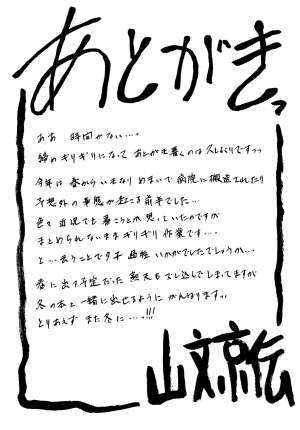 あとがきっ
ああ 時間がない…っ
締めギリギリになって あとがきを書くのは久しぶりですっっ
今年は 春から いきなり めまいで 病院に搬送されたり
予想外の事態が起こる前半でした…
色々 近況でも書こうとか思っていたのですが
まとめられないままギリギリ作業です…。
と…云うことで いかがでしたでしょうか…
春に出す予定だった 新刊もズレ込んでしまってますが
冬の本と一緒に出せるように がんばりますっ
とりあえず また冬に…っ!!!
山文京伝